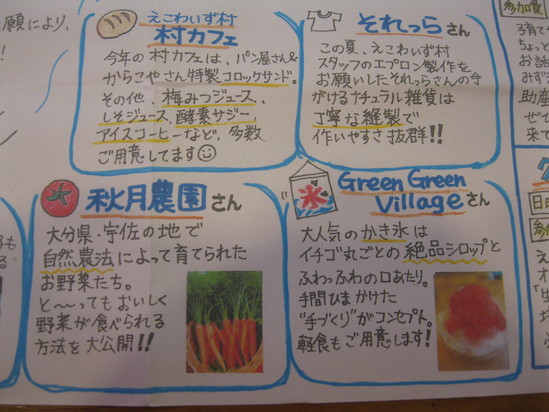 願により、
えこわいず村
村カフェ
今年の村カフェは、パン屋さん&
からこやさん特製コロッケサンド。
その他、梅みつジュース、
しそジュース、酵素サジー、
アイスコーヒーなど、多数
ご用意してます
それっらさん
この夏、えこわいず村
スタッフのエプロン製作を
お願いしたそれっらさんの手
がけるナチュラル雑貨は
丁寧な縫製で
作りやすさ抜群!!
秋月農園さん
大分県・宇佐の地で
自然農法によって育てられた
お野菜たち。
と〜ってもおいしく
野菜が食べられる
方法を大公開!!
氷
Green Green
Villageさん
大人気のかき氷は
イチゴ丸ごとの絶品シロップと
ふわっふわの口あたり。
手間ひまかけた
"手づくり"がコンセプト。
軽食もご用意します!
参加賞
子育て
ちょっと
お話
みず
助産
ぜひ
来て